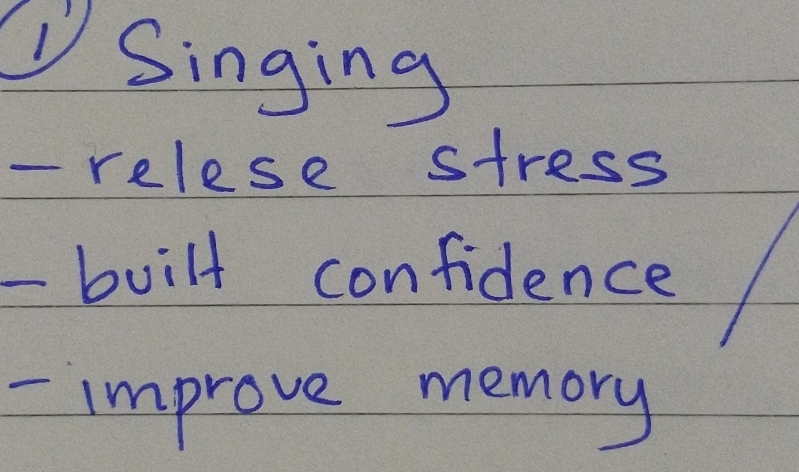 ① Singing
- relese stress
- built confidence
- improve memory